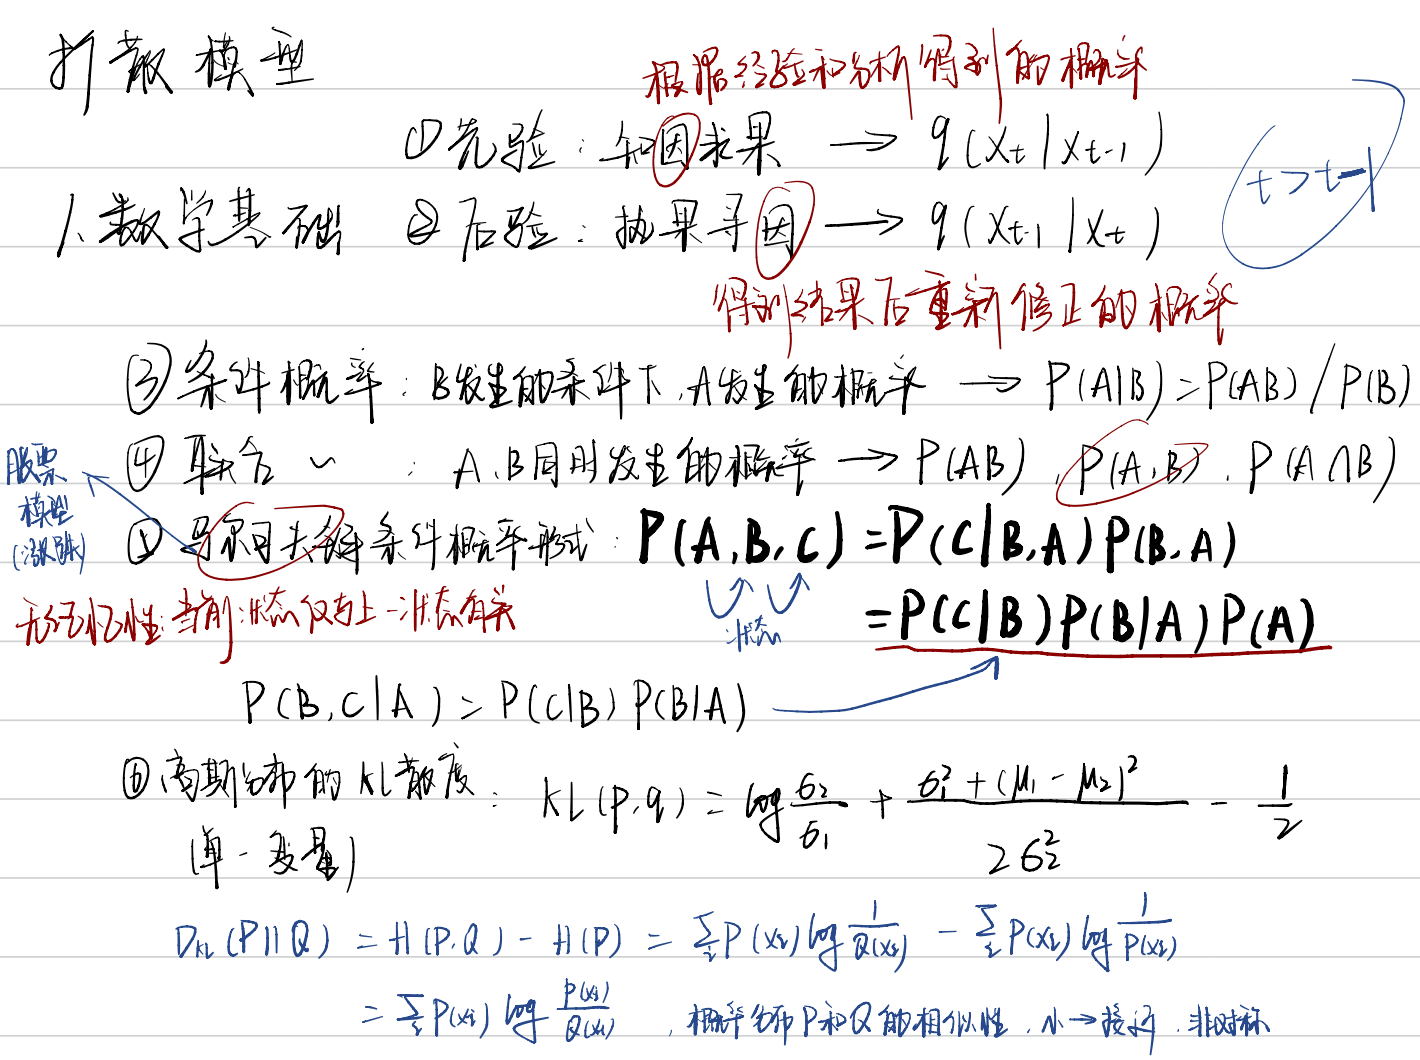 扩散模型
根据经验和分析得到的概率
①先验：知因求果 → q(Xt|Xt-1)
t>t-1
1、数学基础 ②后验：执果寻因 → q(Xt-1|Xt)
得到结果后重新修正的概率
③条件概率：B发生的条件下，A发生的概率 → P(A|B)=P(AB)/P(B)
④联合 〃 ：A、B同时发生的概率 → P(AB)，P(A,B)，P(A∩B)
股票
模型
(涨跌)
⑤马尔可夫链条件概率形式：P(A,B,C)=P(C|B,A)P(B,A)
=P(C|B)P(B|A)P(A)
状态
无记忆性：当前状态仅与上一状态有关
P(B,C|A)=P(C|B)P(B|A)
⑥高斯分布的KL散度：KL(p,q)=log σ2/σ1 + (σ1²+(μ1-μ2)²)/2σ2² - 1/2
(单一变量)
DKL(P||Q)=H(P,Q)-H(P)=∑i P(xi)log 1/Q(xi) - ∑i P(xi)log 1/P(xi)
=∑i P(xi)log P(xi)/Q(xi)，概率分布P和Q的相似性，小→接近，非对称